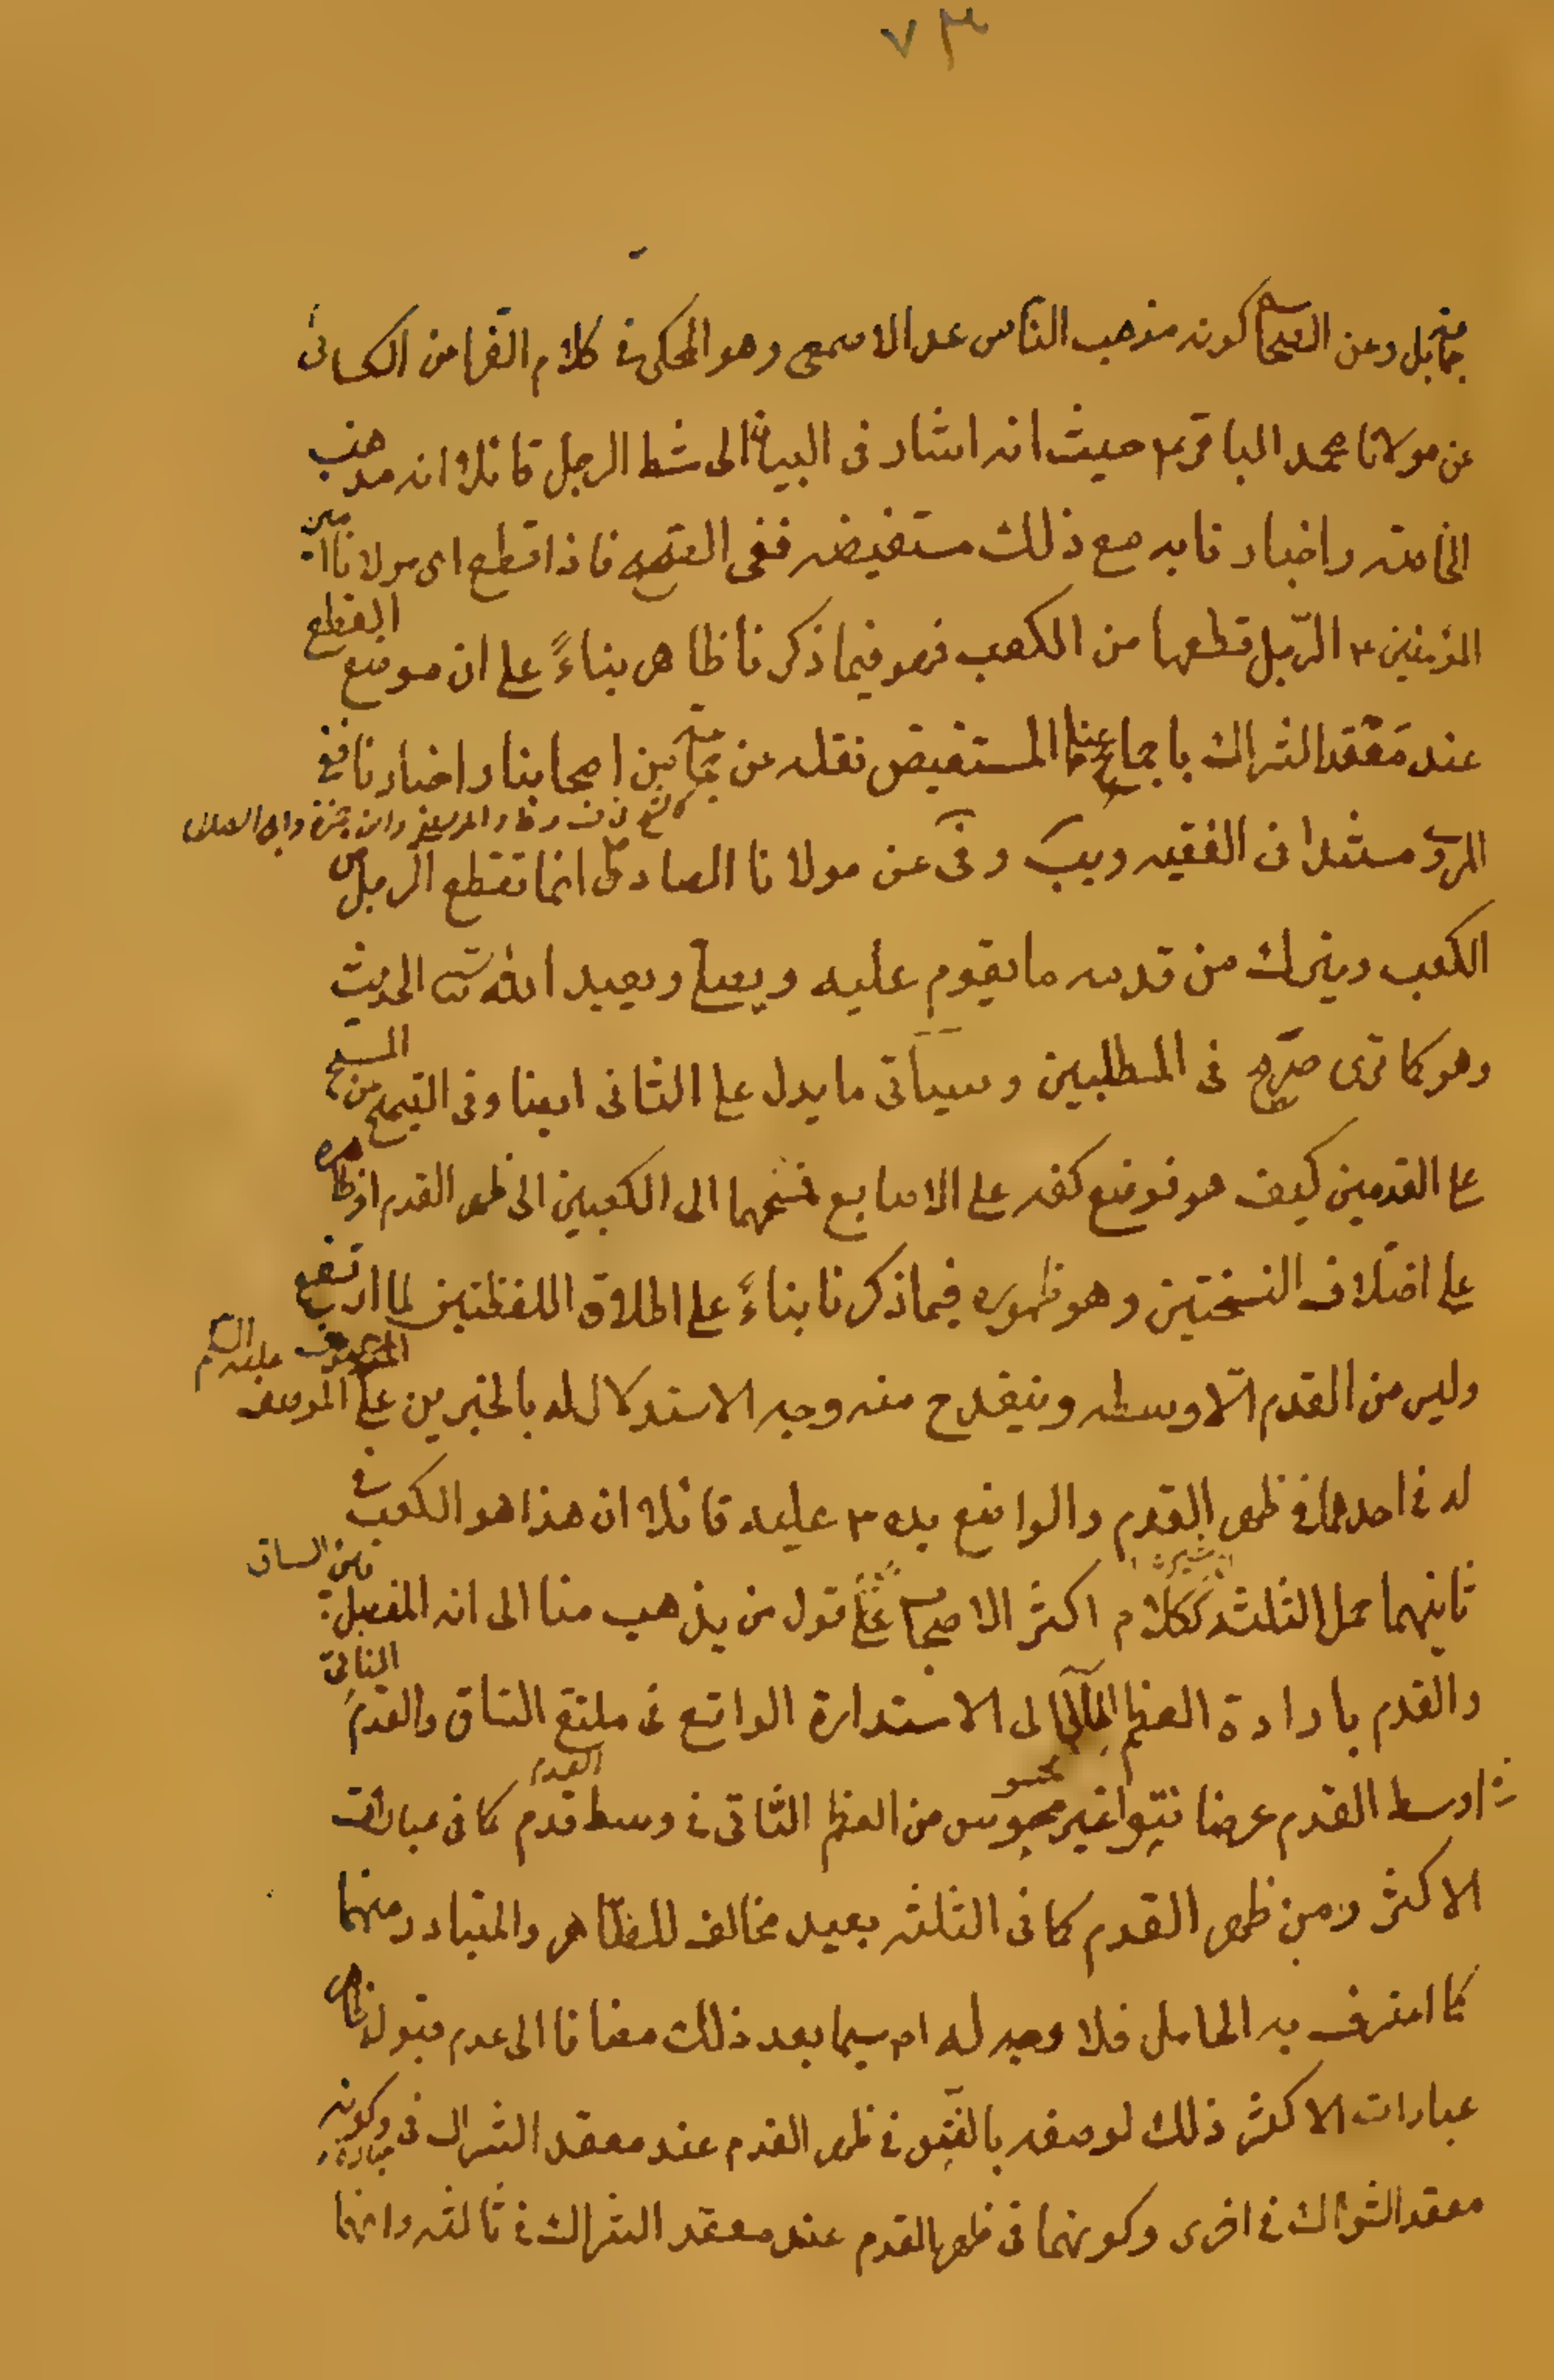 ٧٣
جماعة بل وعن الصحاح كونه مذهب الناس عدا الاصمعي وهو المحكى فى كلام الفرا من الكسائى
عن مولانا محمد الباقر ع حيث انه اشار فى البيان الى مشط الرجل قائلا انه مذهب
الخاصة واخبارنا به مع ذلك مستفيضه ففى الصحيح فاذا قطع اى مولانا امير
المؤمنين ع الرّجل قطعها من الكعب فهو فيما ذكرنا ظاهر بناءً على ان موضع القطع
عند مَعْقد الشراك باجماعنا المستفيض نقله عن جماعة من اصحابنا واخبارنا ففى
والمرتضى وابن حمزة وابى الصلاح
المروى فى الفقيه ويب وفى عن مولانا الصادق انما تقطع الرجل من
الكعب ويترك من قدمه ما يقوم عليه ويصلى ويعبد الله تعالى الحديث
وهو كما ترى صريح فى المطلبين وسيأتى ما يدل على الثانى ايضا وفى الصحيح عن المسح
على القدمين كيف هو فوضع كفه على الاصابع فمسحهما الى الكعبين الى ظهر القدم او ظاهره
على اختلاف النسختين وهو ظهوره فيما ذكرنا بناءً على اطلاق اللفظتين لما ارتفع
وليس من القدم الّا وسطه وينقدح منه وجه الاستدلال له بالخبرين على الموصف
له فى احدهما فى ظهر القدم والواضع يده ع عليه قائلا ان هذا هو الكعب فى
ثانيهما حمل الثلثه ككلام اكثر الاصحاب على قول من يذهب منا الى انه المفصل بين الساق
والقدم بارادة العظم المائل الى الاستدارة الواقع فى ملتقى الساق والقدم الناتى
وسط القدم عرضا نتوا غير محسوس من العظم الناتى فى وسط القدم كما فى عبارات
الاكثر ومن ظهر القدم كما فى الثلثه بعيد مخالف للظاهر والمتبادر منهما
كما اعترف به الحامل فلا وجه له سيما بعد ذلك مضافا الى عدم قبول ظاهر
عبارات الاكثر ذلك لوصفه بالنتو فى ظهر القدم عند معقد الشراك فى عبارة وكونه
معقد الشراك فى اخرى وكونهما فى ظهر القدم عند معقد الشراك فى ثالثه وانهما